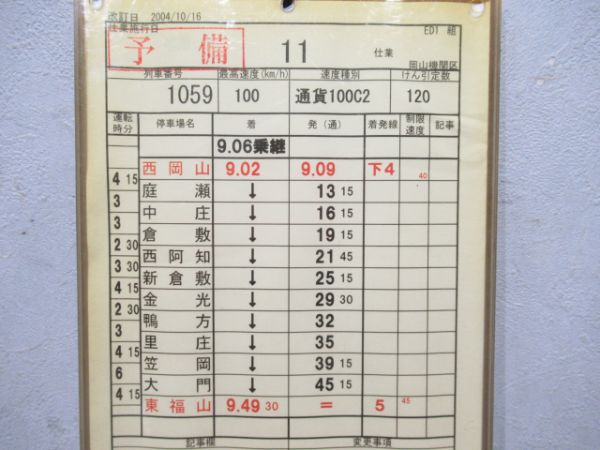 改訂日 2004/10/16
仕業施行日 EDI 組
予備 11 仕業
岡山機関区
列車番号 最高速度(km/h) 速度種別 けん引定数
1059 100 通貨100C2 120
運転時分 停車場名 着 発(通) 着発線 制限速度 記事
9.06乗継
西岡山 9.02 9.09 下4 40
4 15
庭瀬 ↓ 13 15
3
中庄 ↓ 16 15
3
倉敷 ↓ 19 15
2 30
西阿知 ↓ 21 45
3 30
新倉敷 ↓ 25 15
4 15
金光 ↓ 29 30
2 30
鴨方 ↓ 32
3
里庄 ↓ 35
4 15
笠岡 ↓ 39 15
6
大門 ↓ 45 15
4 15
東福山 9.49 30 = 5 45
記事欄 変更事項